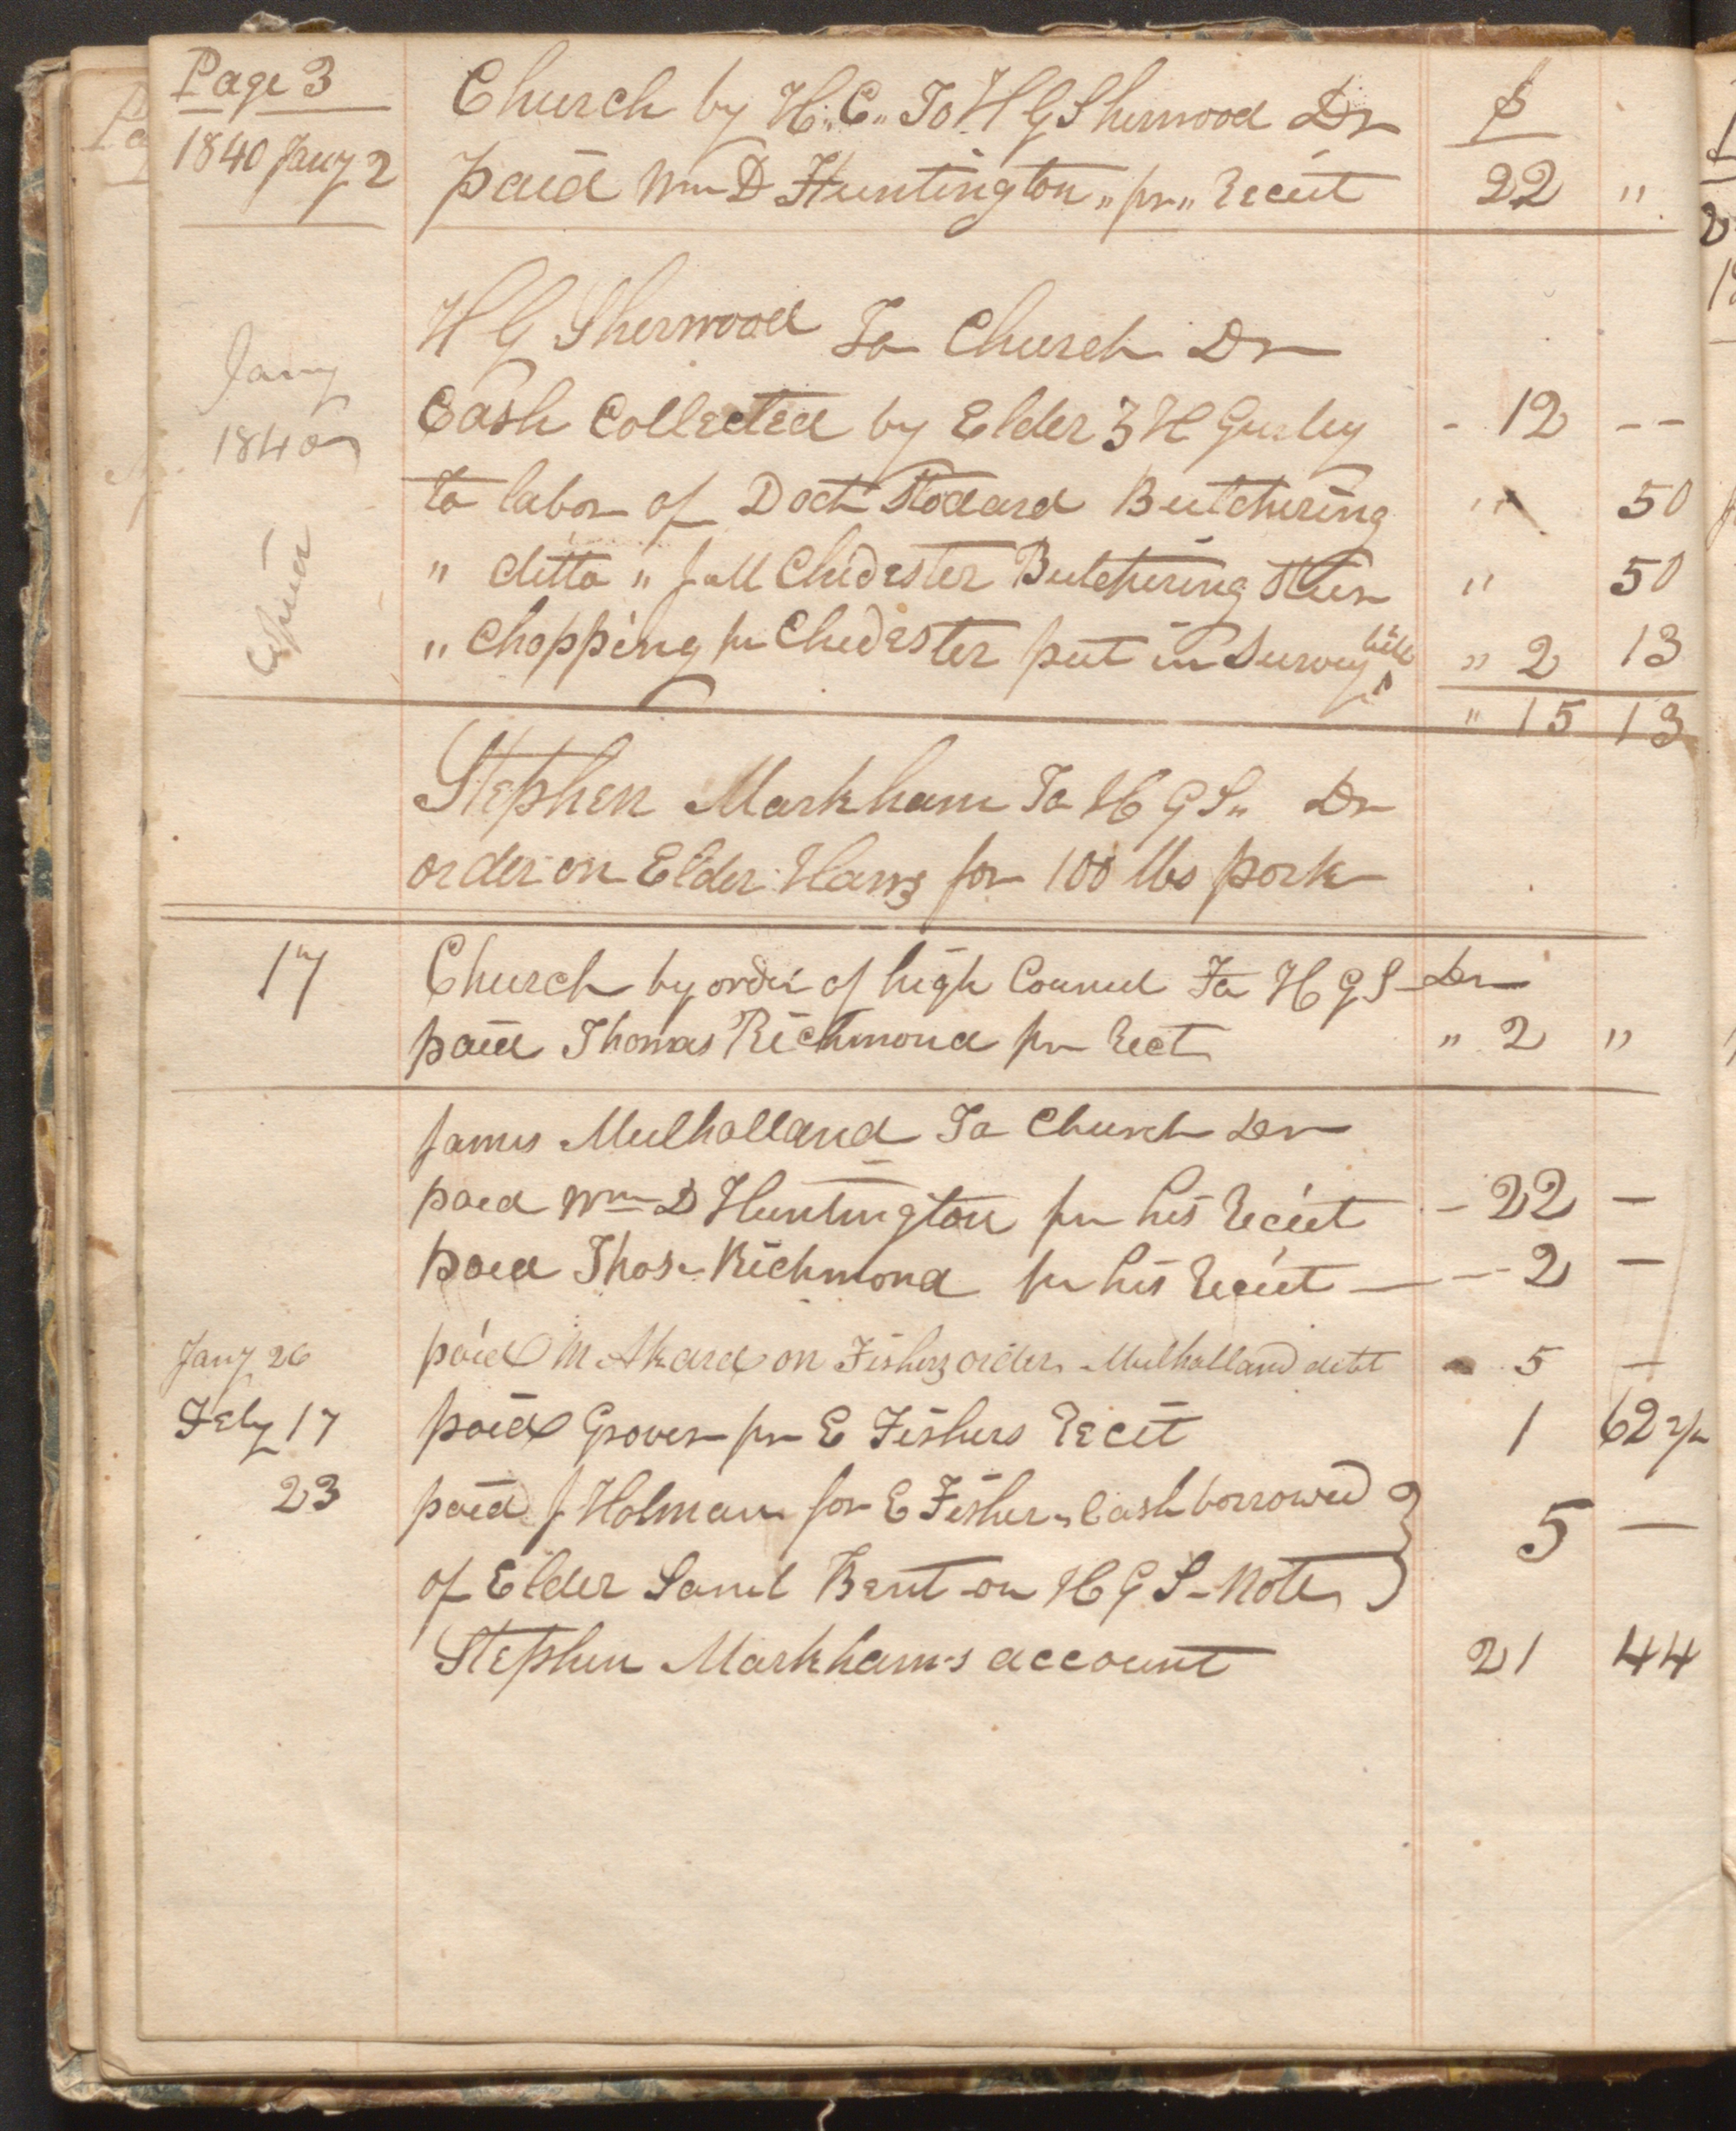 Page 3
Church by H. C. To H G Sherwood Dr $
1840 Jany 2 paid Wm D Huntington " pr " Receit 22 "
H G Sherwood To Church Dr
Jany 1840 Cash Collected by Elder Z H Gurley - 12 --
to labor of Doct Stodard Butchering " 50
" ditto " J M Chidester Butchering Steer " 50
" Chopping pr Chidester put in Survey bill " 2 13
Copied
" 15 13
Stephen Markham To H G S " Dr
order on Elder Harris for 100 lbs pork
17 Church by order of high Council To H G S - Dr
paid Thomas Richmond pr Rect " 2 "
James Mulholland To Church Dr
paid Wm D Huntington pr his Receit - 22 -
paid Thos Richmond pr his Receit - 2 -
Jany 26 paid M Akard on Fishers order Mulholland debt 5 -
Feby 17 paid Grover pr E Fishers Receit 1 62 1/2
23 paid J Holman for E Fisher " Cash borrowed
of Elder Saml Bent on H G S - Note 5 -
Stephen Markham's account 21 44